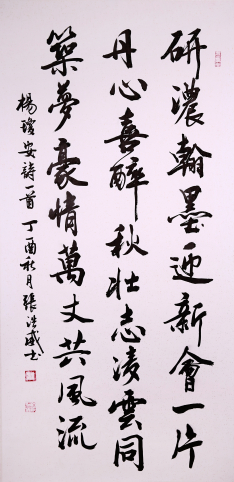 研濃翰墨迎新會一片
丹心喜醉秋壯志凌雲同
築夢豪情萬丈共風流
楊安詩一首 丁酉秋月張威書